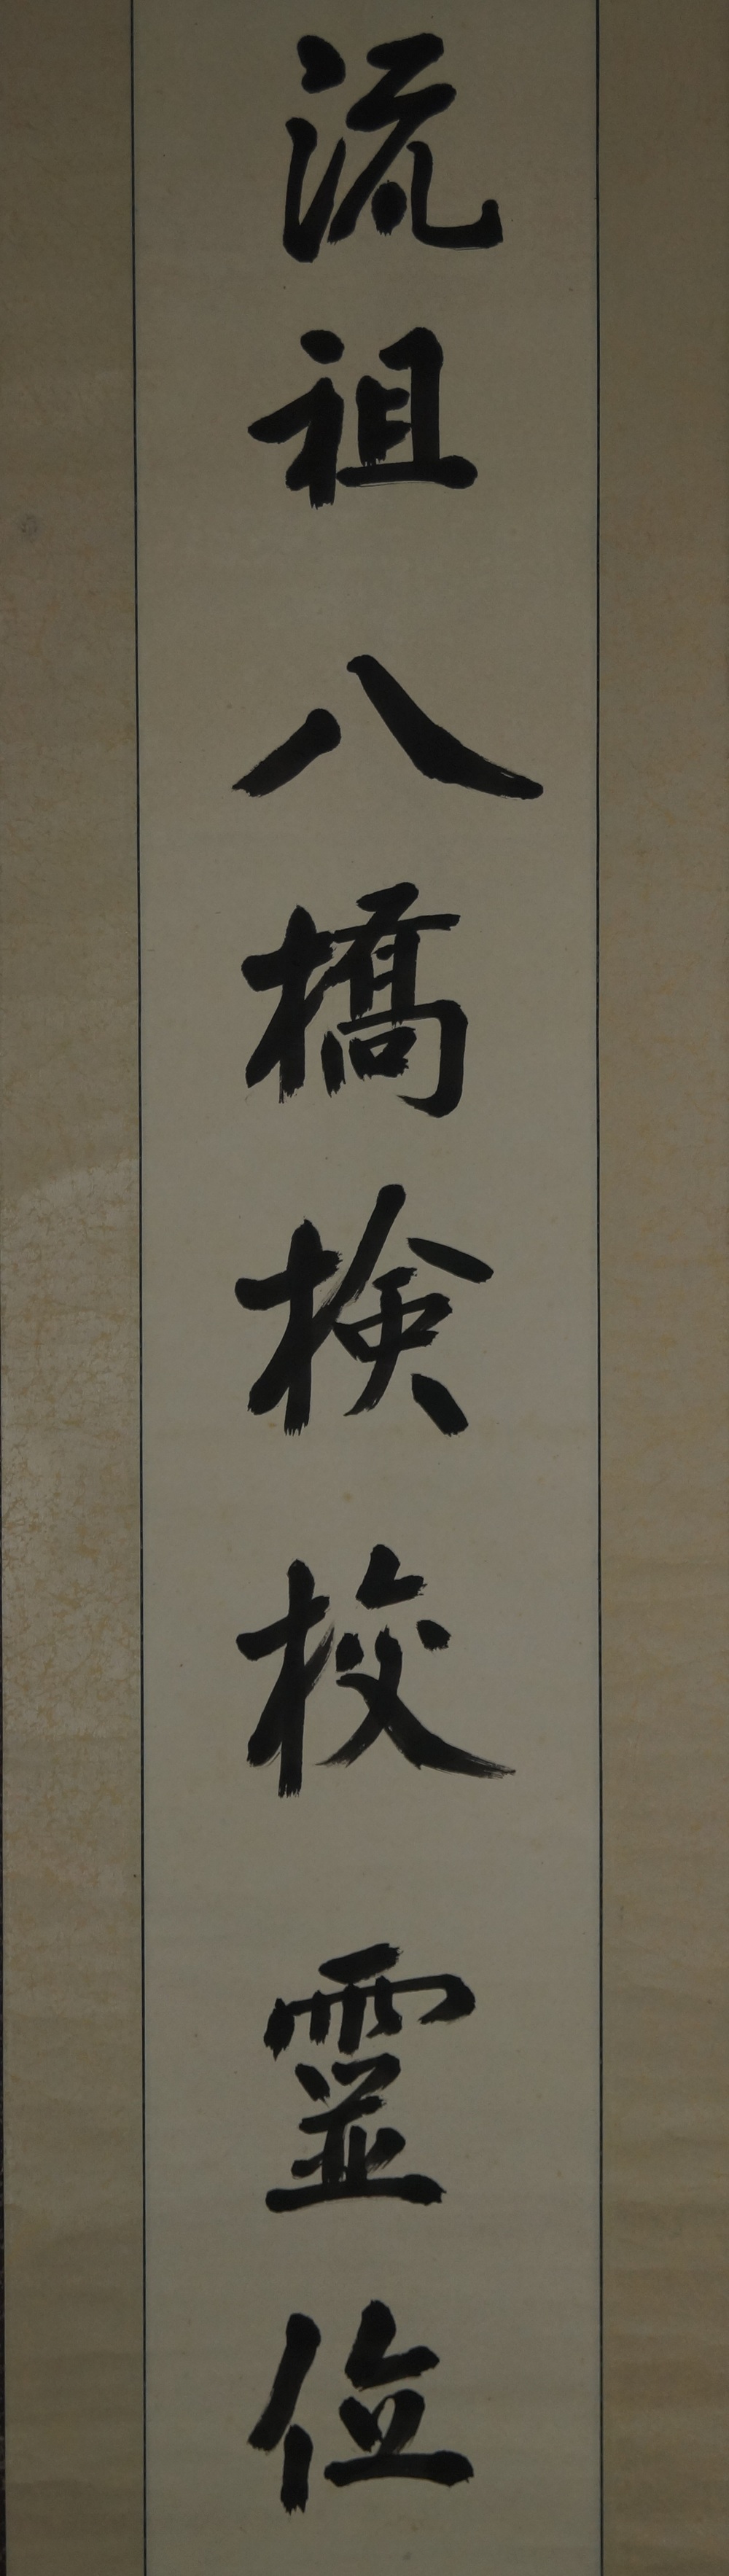 流祖八橋検校霊位